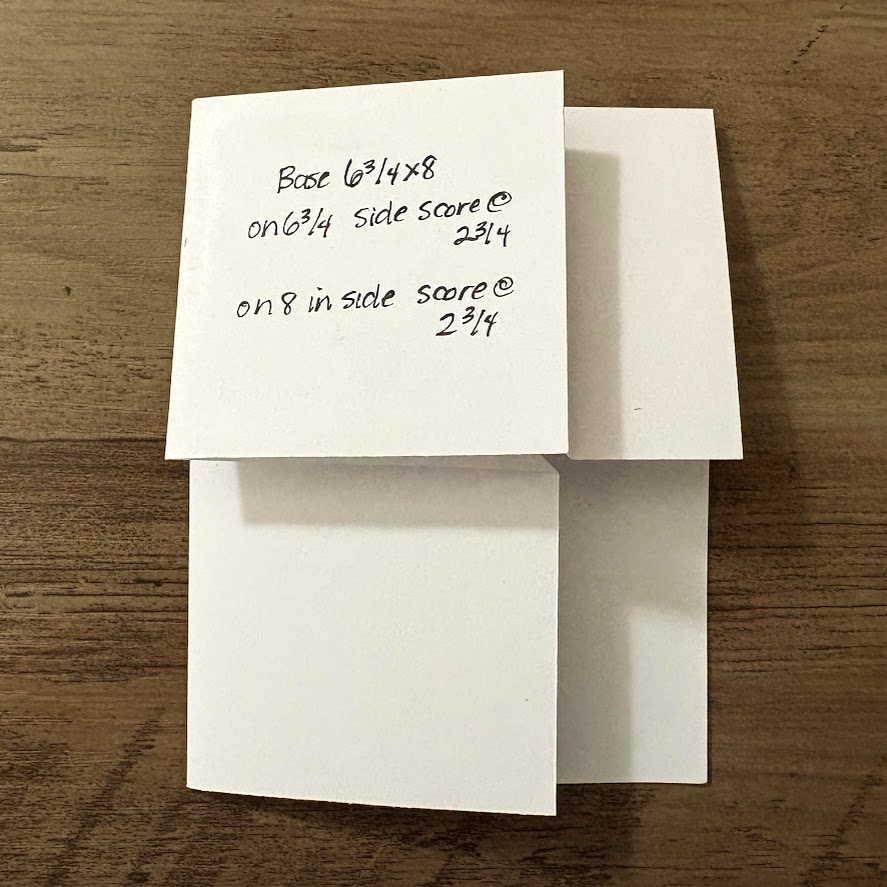 Base 6 3/4 x 8
on 6 3/4 side score @
2 3/4
on 8 in side score @
2 3/4